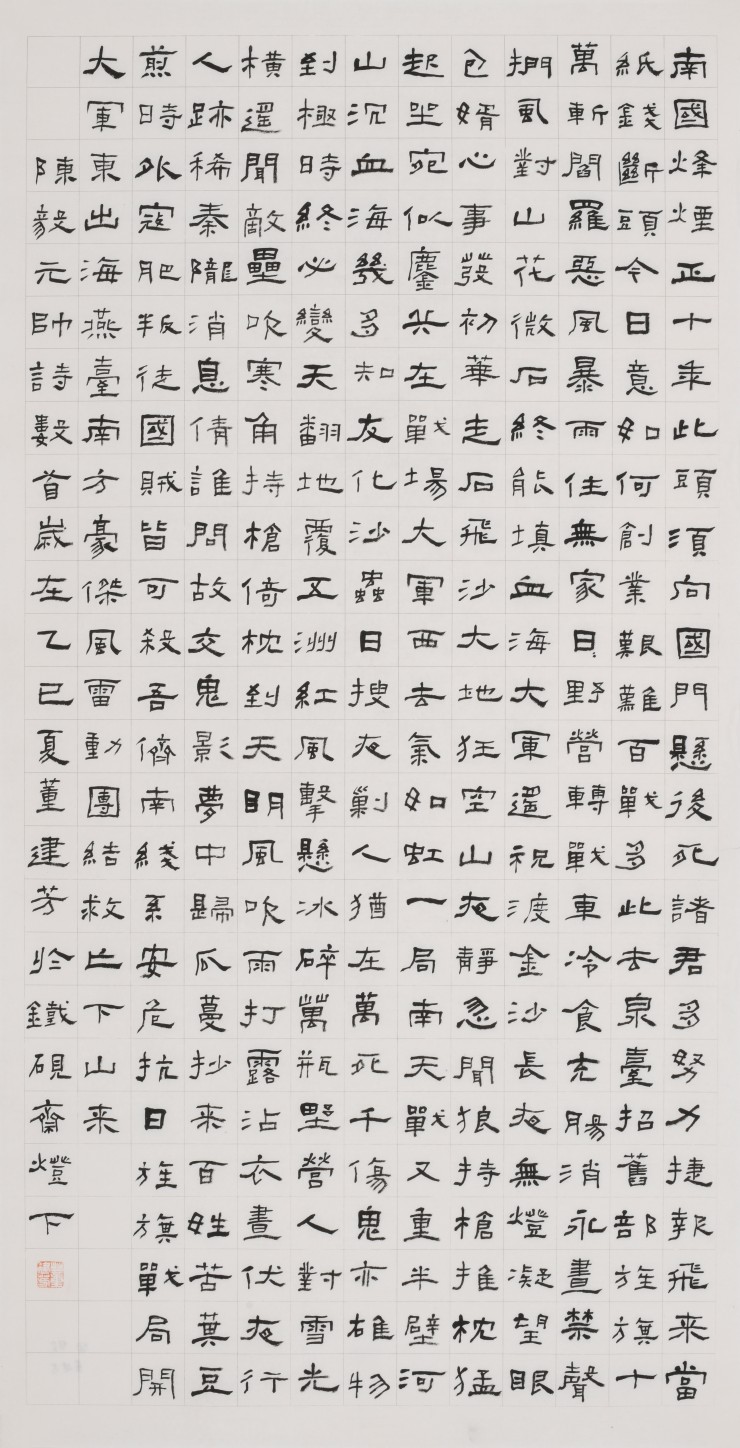 南國烽煙正十年此頭須向國門懸後死諸君多努力捷報飛来當
紙錢斷頭今日意如何創業艱難百戰多此去泉臺招舊部旌旗十
萬斬閻羅惡風暴雨住無家日〻野營轉戰車冷食充腸消永晝禁聲
捫虱對山花微石終能填血海大軍遥祝渡金沙長夜無燈凝望眼
包婿心事發初華走石飛沙大地狂空山夜靜忽聞狼持槍推枕猛
起坐宛似鏖兵在戰場大軍西去氣如虹一局南天戰又重半壁河
山沉血海幾多知友化沙蟲日搜夜剿人猶在萬死千傷鬼亦雄物
到極時終必變天翻地覆五洲紅風擊懸冰碎萬瓶野營人對雪光
橫遥聞敵壘吹寒角持槍倚枕到天明風吹雨打露沾衣晝伏夜行
人跡稀秦隴消息倩誰問故交鬼影夢中歸瓜蔓抄来百姓苦萁豆
煎時外寇肥叛徒國賊皆可殺吾儕南綫系安危抗日旌旗戰局開
大軍東出海燕臺南方豪傑風雷動團結救亡下山来
陳毅元帥詩數首歲在乙巳夏董建芳於鐵硯齋燈下